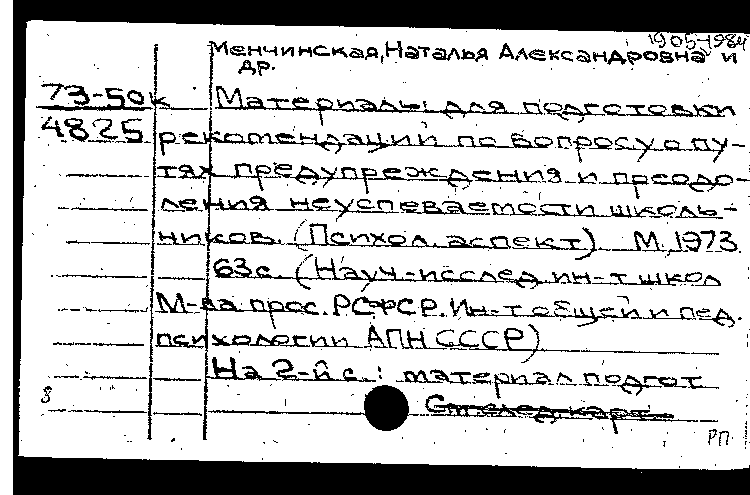 19051984
Менчинская, Наталья Александровна и
др.
73-50к Материалы для подготовки
4825 рекомендаций по вопросу о пу-
тях предупреждения и преодо-
ления неуспеваемости школь-
ников. (Психол. аспект) М., 1973.
63с. (Науч.-исслед. ин-т школ
М-ва прос. РСФСР. Ин-т общей и пед.
психологии АПН СССР)
На 2-й с.: материал подгот.
8 См. след. карт.
РП